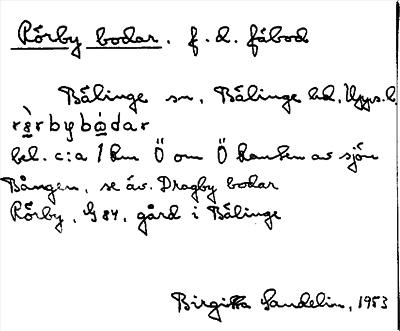 Rörby bodar. f. d. fäbod
Bälinge sn, Bälinge hd, Upps. l.
rè̱rbybó̱dar
bel. c:a 1 km Ö om Ö kanten av sjön
Bången, se äv. Dragby bodar
Rörby, G 84, gård i Bälinge
Birgitta Sandelin, 1953